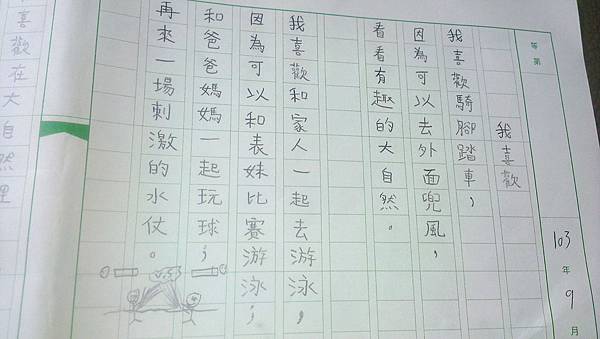 等第
103年9月
我喜歡
我喜歡騎腳踏車,
因為可以去外面兜風,
看看有趣的大自然。
我喜歡和家人一起去游泳,
因為可以和表妹比賽游泳;
和爸爸媽媽一起玩球;
再來一場刺激的水仗。
V.S
喜歡在大自然裡